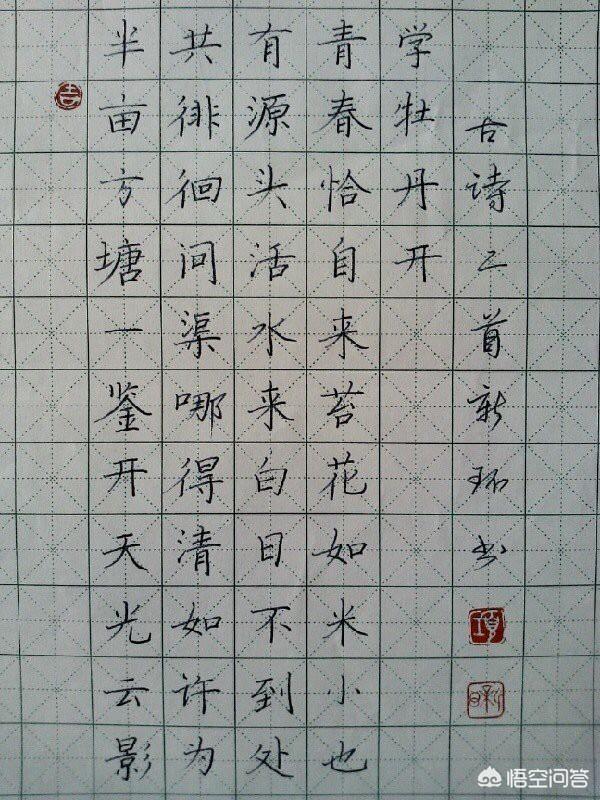 吉
半亩方塘一鉴开天光云影
共徘徊问渠哪得清如许为
有源头活水来白日不到处
青春恰自来苔花如米小也
学牡丹开
古诗二首新环书
項
悟空问答